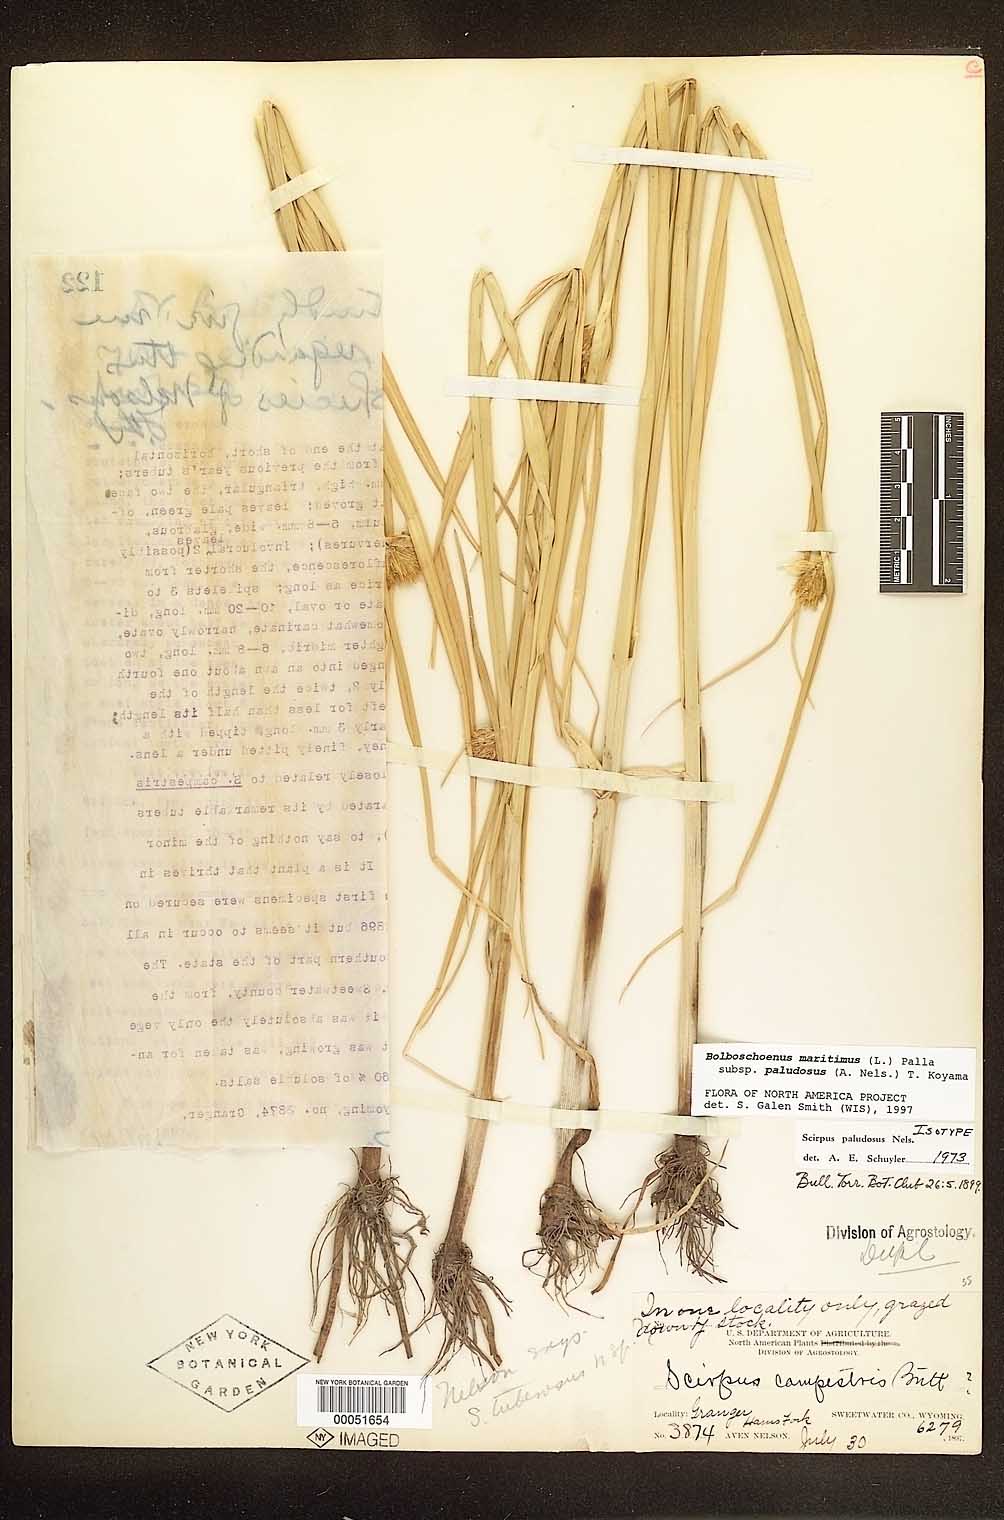 C
122
regarding this
species of Nelson's
at the end of short, horizontal
from the previous year's tubers;
m. high, triangular, the two face
t groved; leaves pale green, of-
uim, 6--8 mm. wide, glabrous,
leaves
nervures); involucral 2(possibly
florescence, the shorter from
rice as long; spikelets 3 to
ate or oval, 10--20 mm. long, di-
omewhat carinate, narrowly ovate,
ghter midrib, 6--8 mm. long, two
nged into an awn about one fourth
ly 2, twice the length of the
left for less than half its length;
arly 3 mm. long, tipped with a
ney, finely pitted under a lens.
losely related to S. campestris
rated by its remarkable tubers
), to say nothing of the minor
It is a plant that thrives in
first specimens were secured on
896 but it seems to occur in all
outhern part of the state. The
. Sweetwater county, from the
it was absolutely the only vege
t was growing, was taken for an-
80 % of soluble salts.
yoming, no. 3874, Granger,
INCHES
1
2
METRIC 1
5
Bolboschoenus maritimus (L.) Palla
subsp. paludosus (A. Nels.) T. Koyama
FLORA OF NORTH AMERICA PROJECT
det. S. Galen Smith (WIS), 1997
ISOTYPE
Scirpus paludosus Nels.
det. A. E. Schuyler 1973
Bull. Torr. Bot. Club 26:5.1899.
Division of Agrostology.
Dupl
55
In one locality only, grazed
down by stock.
U. S. DEPARTMENT OF AGRICULTURE.
North American Plants Distributed by the
DIVISION OF AGROSTOLOGY.
Scirpus campestris Britt ?
Locality: Granger Hams Fork SWEETWATER CO., WYOMING.
No. 3874 AVEN NELSON. July 30 6279 , 1897.
Nelson says
S. tuberosus n sp
NEW YORK
BOTANICAL
GARDEN
NEW YORK BOTANICAL GARDEN
00051654
NY IMAGED